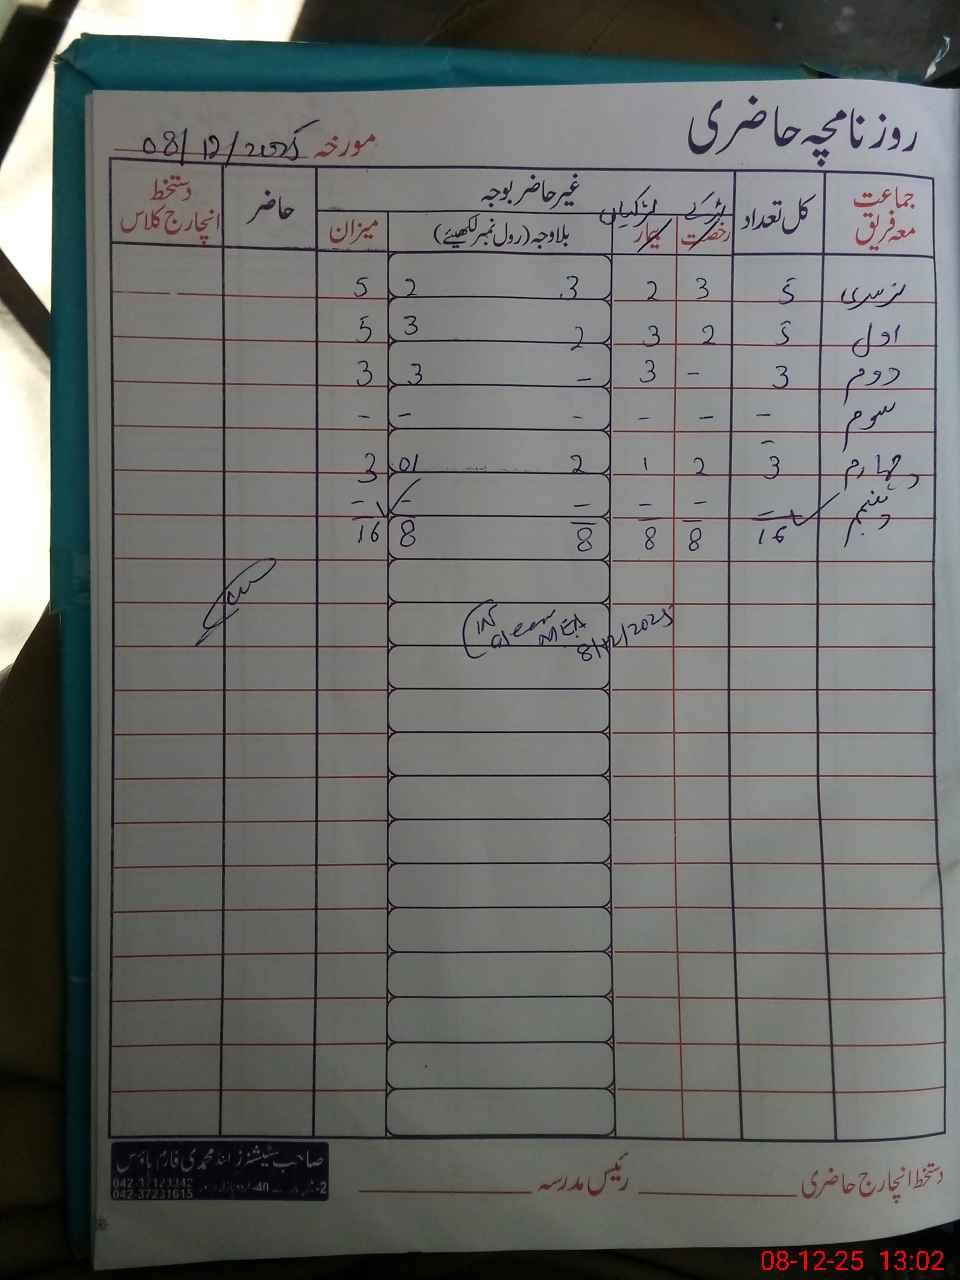 روزنامچہ حاضری
مورخہ 08/12/2025
جماعت معہ فریق کل تعداد غیر حاضر بوجہ حاضر دستخط انچارج کلاس
لڑکے لڑکیاں
رخصت بیمار بلاوجہ (رول نمبر لکھیئے) میزان
نرسری 5 3 2 3 2 5
اول 5 2 3 2 3 5
دوم 3 - 3 - 3 3
سوم - - - - - -
چہارم 3 2 1 2 01 3
پنجم - - - - - -
16 8 8 8 8 16
(IN
MEA
8/12/2025
دستخط انچارج حاضری رئیس مدرسہ
صاحب سٹیشنرز اینڈ محمدی فارم ہاؤس
042-37123342
042-37231615
08-12-25 13:02